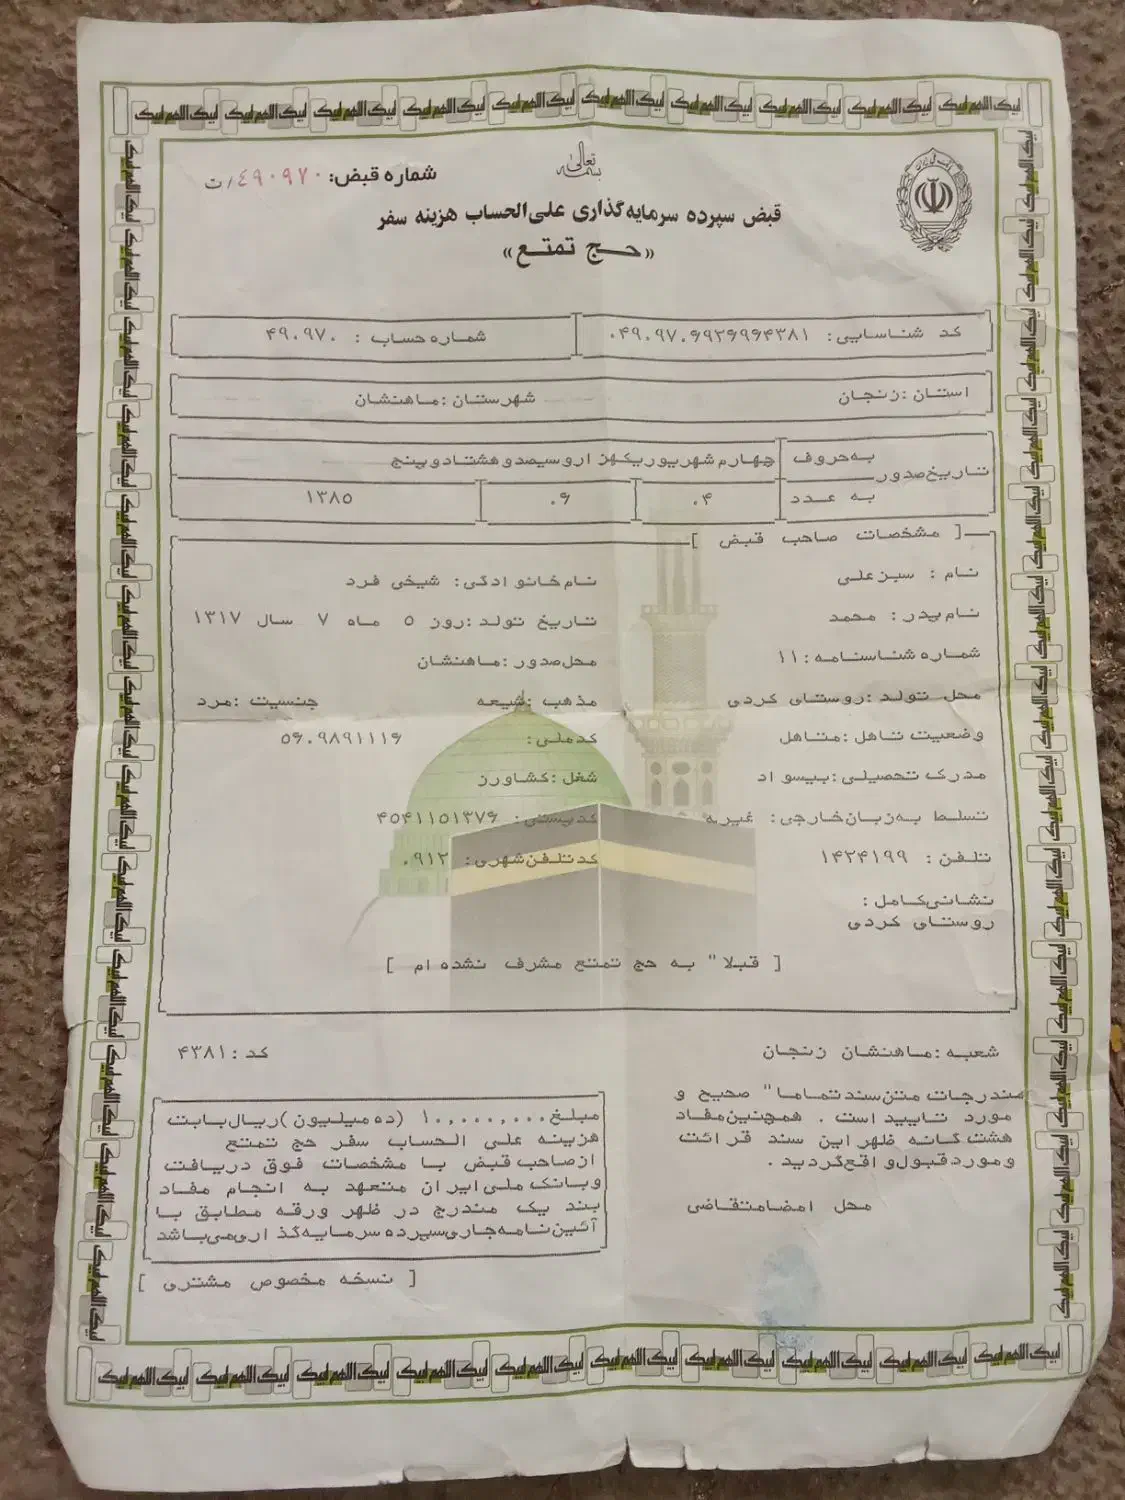 لبیک اللهم لبیک لبیک اللهم لبیک لبیک اللهم لبیک لبیک اللهم لبیک لبیک اللهم لبیک لبیک اللهم لبیک لبیک اللهم لبیک لبیک اللهم لبیک لبیک اللهم لبیک لبیک اللهم لبیک
بسمه تعالی
شماره قبض: ۴۹۰۹۷۰/ت
قبض سپرده سرمایه‌گذاری علی‌الحساب هزینه سفر
«حج تمتع»
کد شناسایی: ۰۴۹۰۹۷۰۶۹۲۶۹۶۴۳۸۱ شماره حساب: ۴۹۰۹۷۰
استان: زنجان شهرستان: ماهنشان
تاریخ صدور به حروف چهارم شهریور یکهزاروسیصدوهشتادوپنج
به عدد ۰۴ ۰۶ ۱۳۸۵
[ مشخصات صاحب قبض ]
نام: سبزعلی نام خانوادگی: شیخی فرد
نام پدر: محمد تاریخ تولد: روز ۵ ماه ۷ سال ۱۳۱۷
شماره شناسنامه: ۱۱ محل صدور: ماهنشان
محل تولد: روستای کردی مذهب: شیعه جنسیت: مرد
وضعیت تاهل: متاهل کدملی: ۵۶۰۹۸۹۱۱۱۶
مدرک تحصیلی: بیسواد شغل: کشاورز
تسلط به زبان خارجی: غیره کدپستی: ۴۵۴۱۱۵۱۳۷۶
تلفن: ۱۴۲۴۱۹۹ کد تلفن شهری: ۰۹۱۲
نشانی کامل:
روستای کردی
[ قبلا" به حج تمتع مشرف نشده ام ]
شعبه: ماهنشان زنجان کد: ۴۳۸۱
مندرجات متن سند تماما" صحیح و
مورد تایید است. همچنین مفاد
هشت گانه ظهر این سند قرائت
و مورد قبول واقع گردید.
محل امضا متقاضی
مبلغ ۱۰,۰۰۰,۰۰۰ (ده میلیون) ریال بابت
هزینه علی الحساب سفر حج تمتع
از صاحب قبض با مشخصات فوق دریافت
و بانک ملی ایران متعهد به انجام مفاد
بند یک مندرج در ظهر ورقه مطابق با
آئین نامه جاری سپرده سرمایه گذاری می باشد
[ نسخه مخصوص مشتری ]
لبیک اللهم لبیک لبیک اللهم لبیک لبیک اللهم لبیک لبیک اللهم لبیک لبیک اللهم لبیک لبیک اللهم لبیک لبیک اللهم لبیک لبیک اللهم لبیک لبیک اللهم لبیک لبیک اللهم لبیک